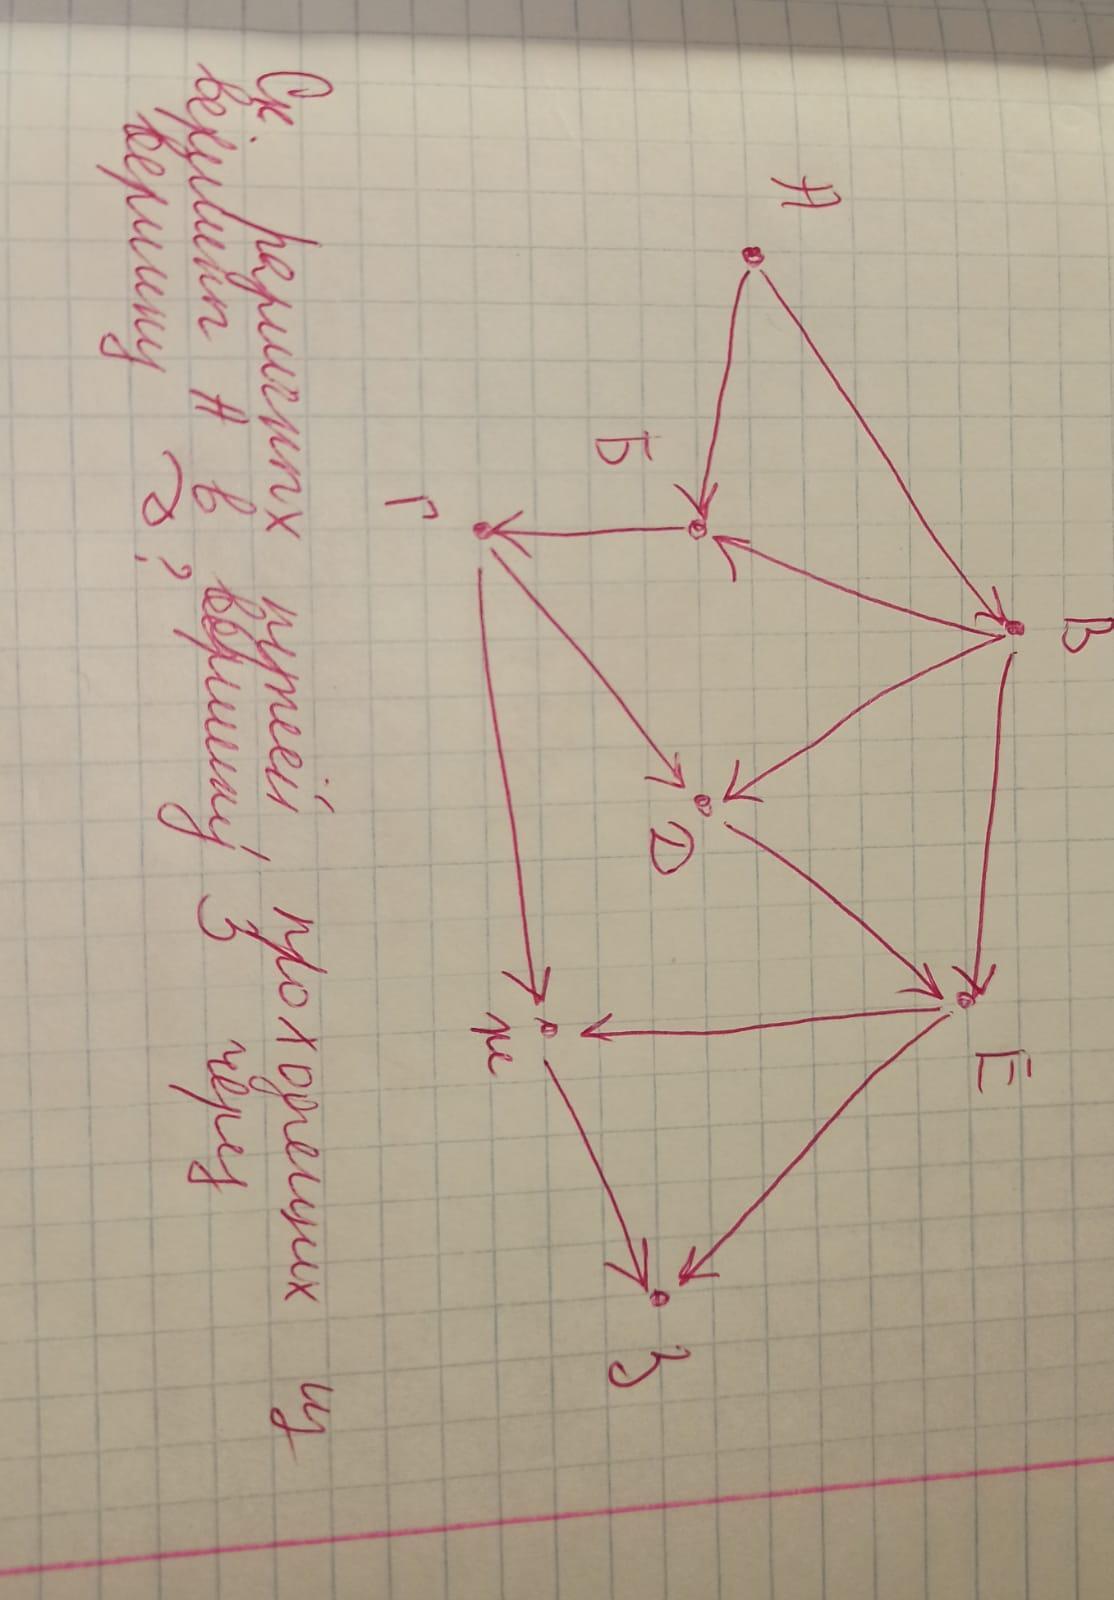 А
В
Б
Г
Д
Е
ж
З
Ск. различных путей проходящих из
вершины А в вершину З через
вершину ?